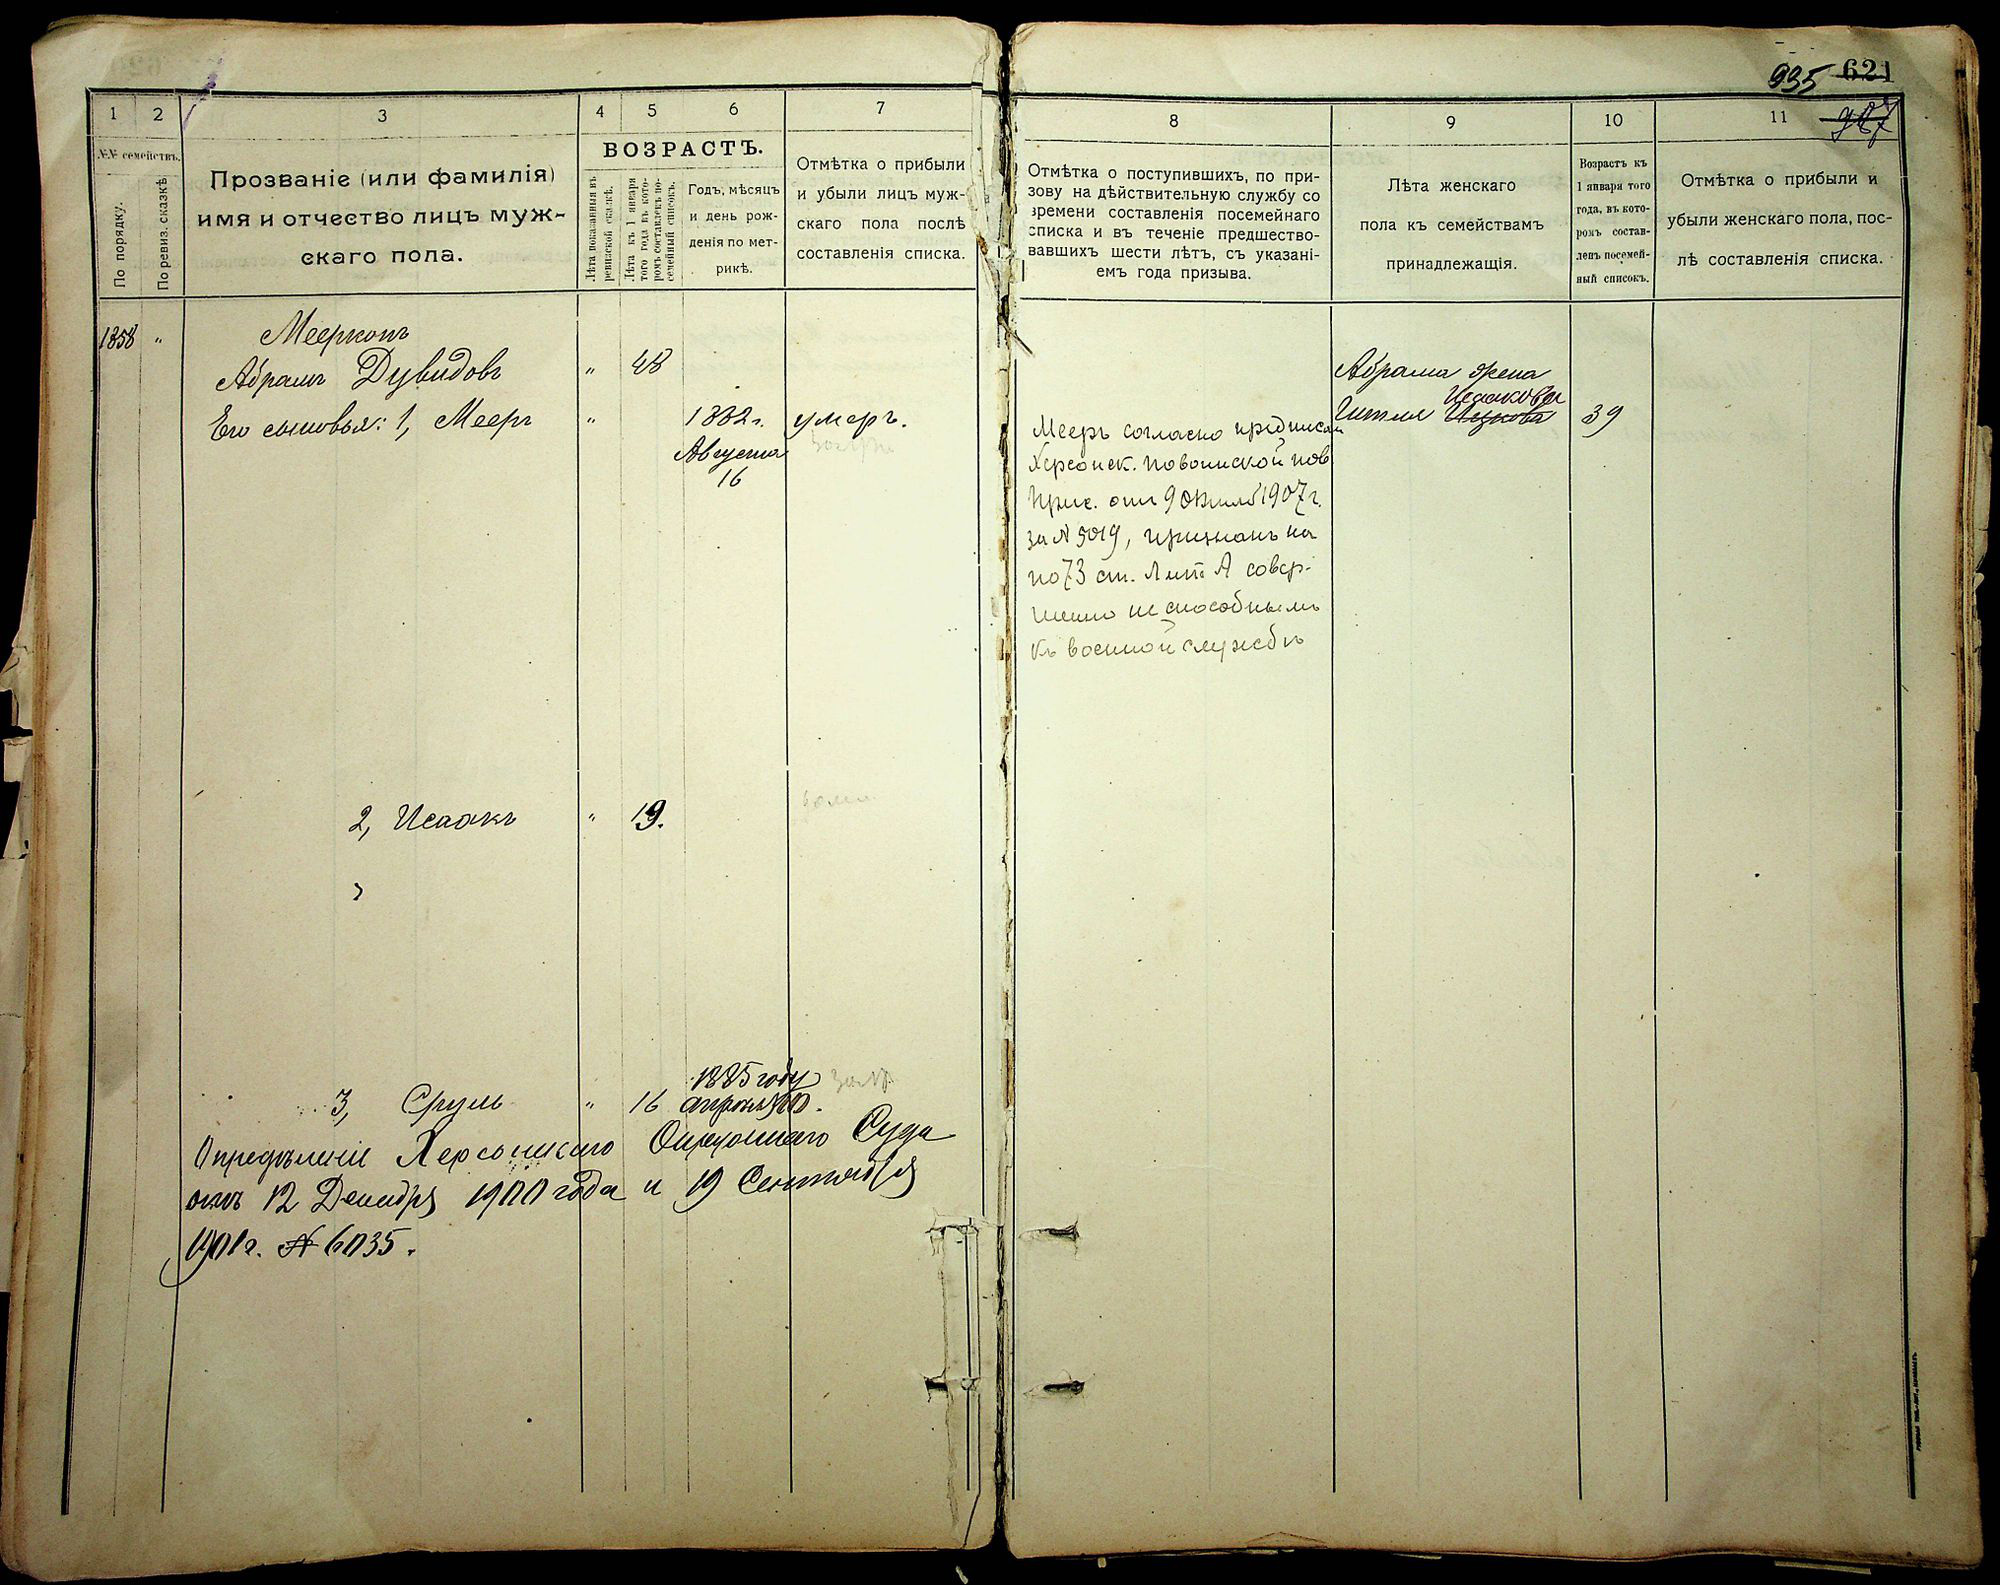 935 621
987
1 2 3 4 5 6 7
№№ семействъ.
По порядку.
По ревиз. сказкѣ.
Прозваніе (или фамилія)
имя и отчество лицъ муж-
скаго пола.
ВОЗРАСТЪ.
Лѣта показанныя въ
ревизской сказкѣ.
Лѣта къ 1 января
того года въ кото-
ромъ составленъ по-
семейный списокъ.
Годъ, мѣсяцъ
и день рож-
денія по мет-
рикѣ.
Отмѣтка о прибыли
и убыли лицъ муж-
скаго пола послѣ
составленія списка.
1858 "
Мееркопъ
Абрамъ Дувидовъ " 48
Его сыновья: 1, Мееръ " 1882 г. умеръ.
Августа
16
2, Исаакъ " 19.
1885 году
3, Сруль " 16 апрѣля
Опредѣленіе Херсонскаго Окружнаго Суда
отъ 12 Декабря 1900 года и 19 Сентября
1901 г. № 6035.
8 9 10 11
Отмѣтка о поступившихъ, по при-
зову на дѣйствительную службу со
времени составленія посемейнаго
списка и въ теченіе предшество-
вавшихъ шести лѣтъ, съ указані-
емъ года призыва.
Лѣта женскаго
пола къ семействамъ
принадлежащія.
Возрастъ къ
1 января того
года, въ кото-
ромъ состав-
ленъ посемей-
ный списокъ.
Отмѣтка о прибыли и
убыли женскаго пола, пос-
лѣ составленія списка.
Мееръ согласно предписан
Херсонск. повоинской пов
Прис. отъ 9 1907 г.
за № 5019, признанъ на
по 73 ст. Лит А совер-
шенно не способнымъ
къ военной службѣ
Абрама жена
Исаакова
Гитля Ицкова 39